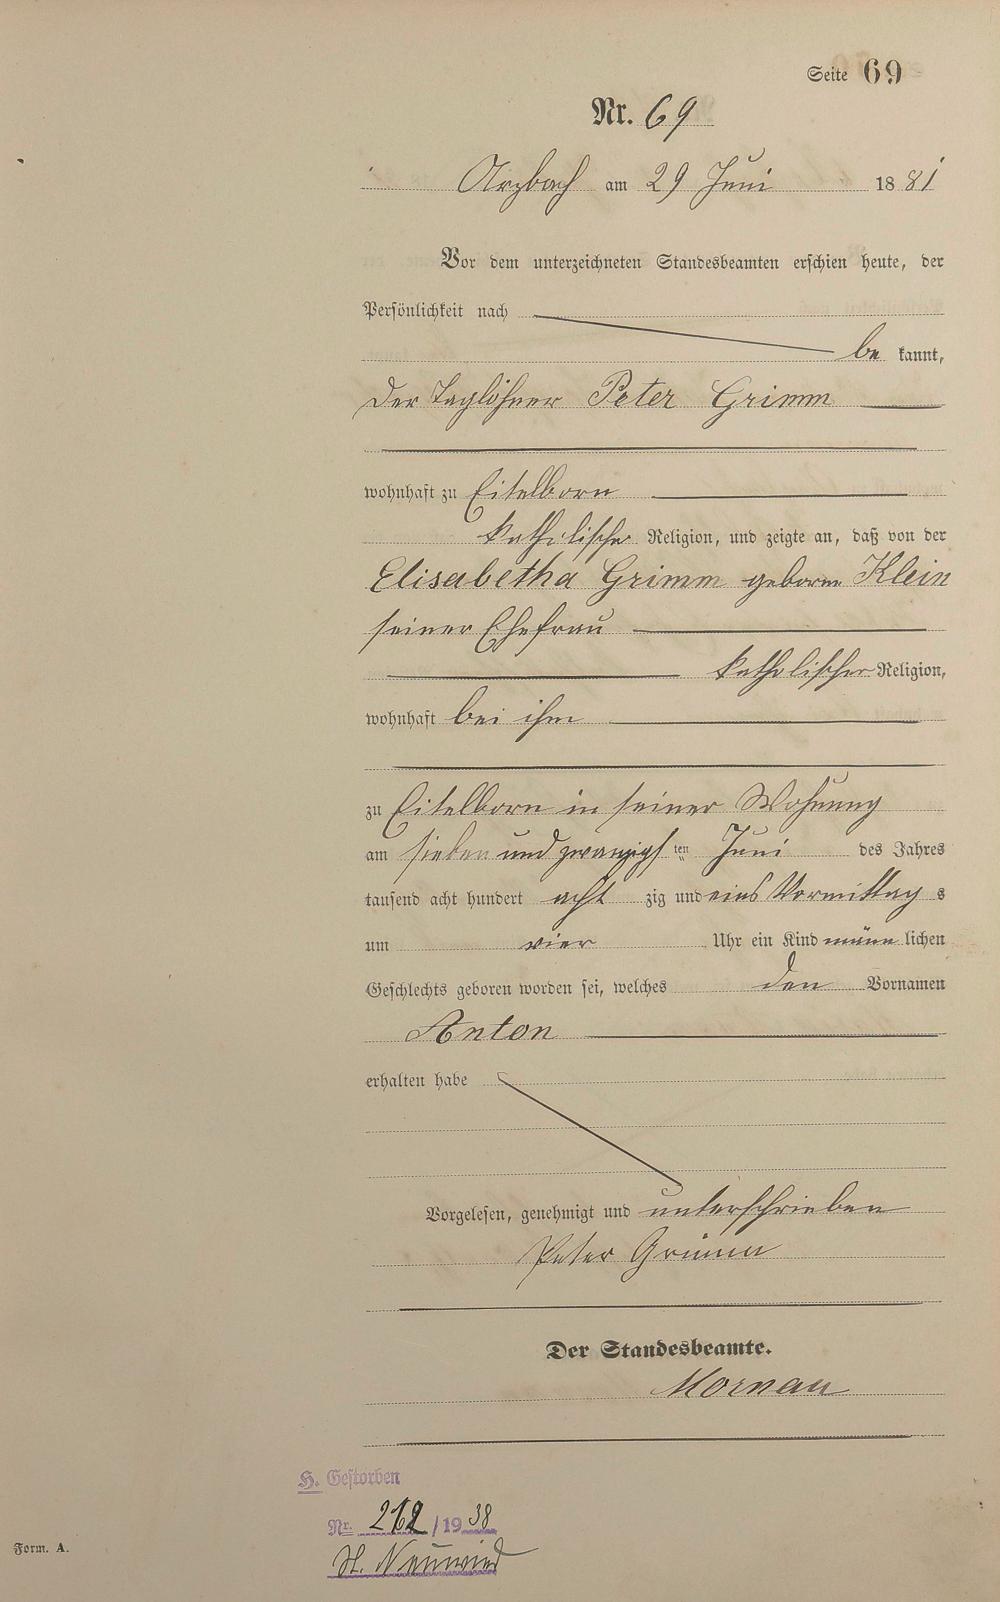 Seite 69
Nr. 69
Arzbach am 29 Juni 1881
Vor dem unterzeichneten Standesbeamten erschien heute, der
Persönlichkeit nach
be kannt,
der Taglöhner Peter Grimm
wohnhaft zu Eitelborn
katholischer Religion, und zeigte an, daß von der
Elisabetha Grimm geborne Klein
seiner Ehefrau
katholischer Religion,
wohnhaft bei ihm
zu Eitelborn in seiner Wohnung
am sieben und zwanzigsten Juni des Jahres
tausend acht hundert acht zig und eins Vormittag s
um vier Uhr ein Kind männ lichen
Geschlechts geboren worden sei, welches den Vornamen
Anton
erhalten habe
Vorgelesen, genehmigt und unterschrieben
Peter Grimm
Der Standesbeamte.
H. Gestorben
Nr. 212/1938
St. Neuwied
Form. A.